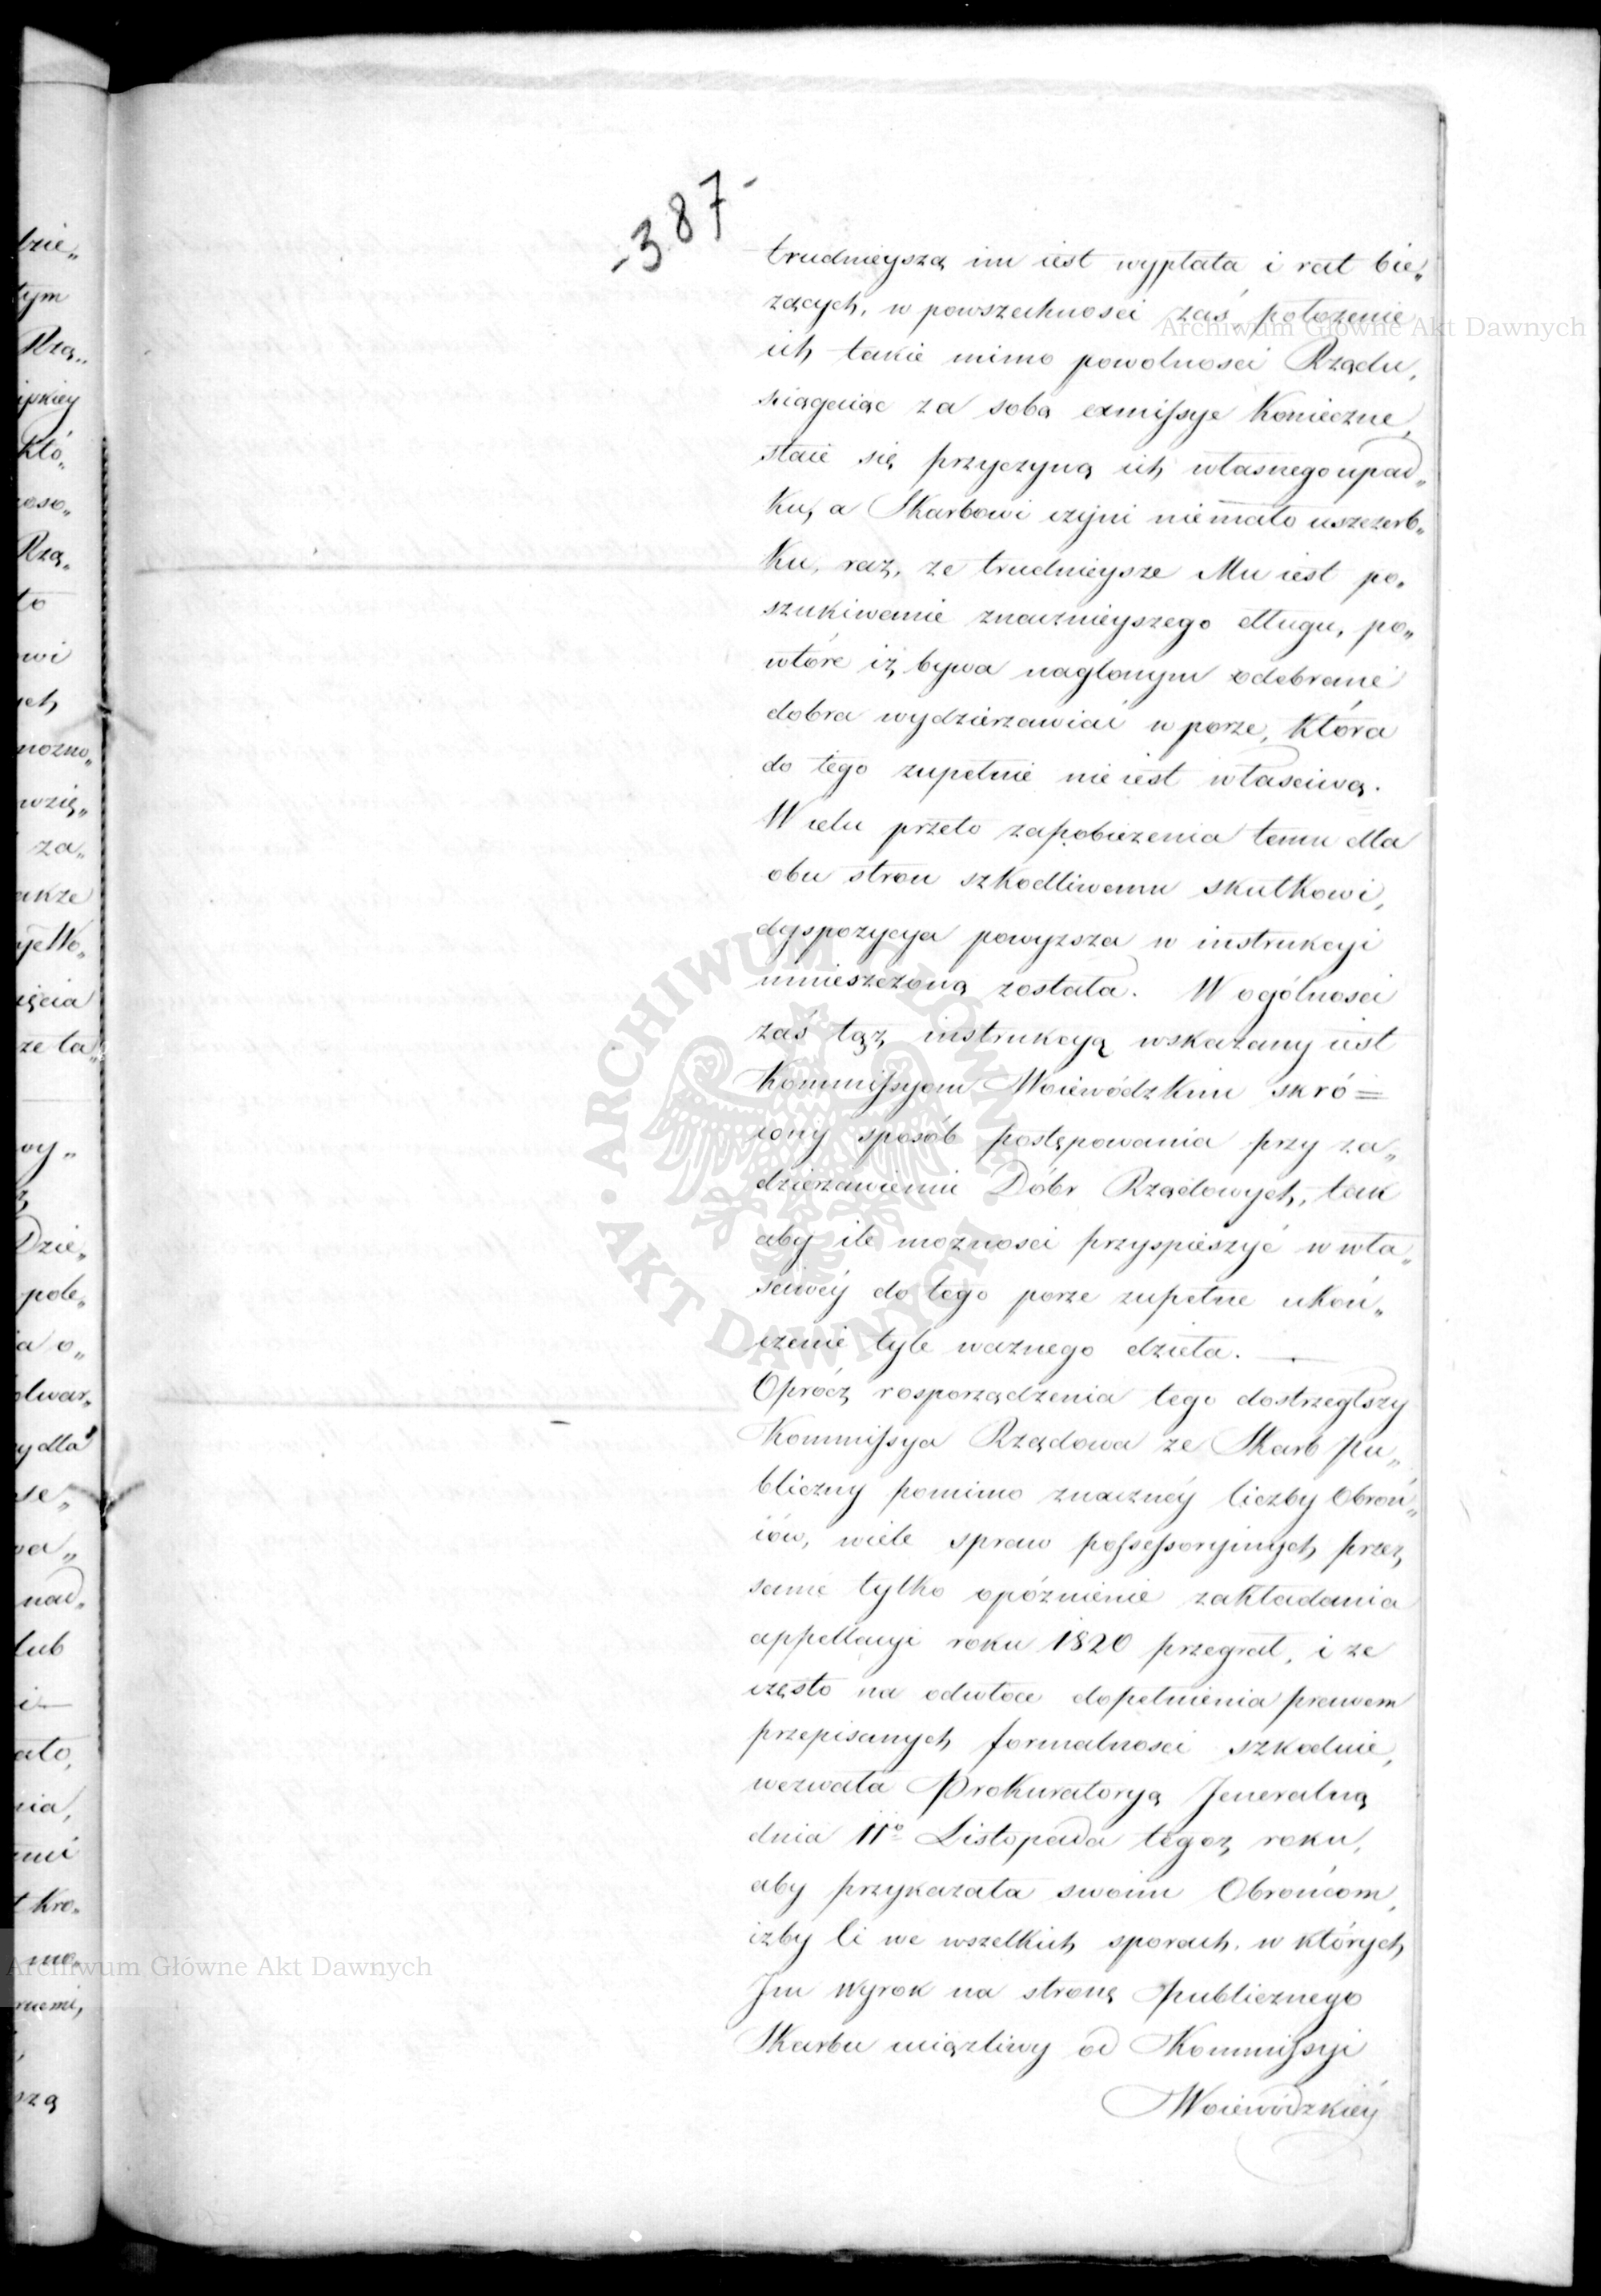 -387-
trudnieyszą im iest wypłata i rat bie„
żących, w powszechności zaś położenie
ich takie mimo powolności Rządu,
ściągaiąc za sobą exmissye konieczne,
staie się przyczyną ich własnego upad„
ku, a Skarbowi czyni niemało uszczerb„
ku, raz, że trudnieysze Mu iest po„
szukiwanie znacznieyszego długu, po„
wtóre iż bywa naglonym odebrane
dobra wydzierżawiać w porze, która
do tego zupełnie nie iest właściwą.
W celu przeto zapobieżenia temu dla
obu stron szkodliwemu skutkowi,
dyspozycya powyższa w instrukcyi
umieszczoną została. W ogólności
zaś tąż instrukcyą wskazany iest
Kommissyom Woiewódzkim skró=
cony sposób postępowania przy za„
dzierżawieniu Dóbr Rządowych, tak
aby ile możności przyspieszyć w wła„
ściwéy do tego porze zupełne ukoń„
czenie tyle ważnego dzieła. —
Oprócz rosporządzenia tego dostrzegłszy
Kommissya Rządowa że Skarb Pu„
bliczny pomimo znacznéy liczby Obroń„
ców, wiele spraw possessoryinych przez
samé tylko opóźnienie zakładania
appellacyi roku 1820 przegrał, i że
często na odwłoce dopełnienia prawem
przepisanych formalności szkodnie,
wezwała Prokuratoryą Jeneralną
dnia 11º Listopada tegoż roku,
aby przykazała swoim Obrońcom,
iżby li we wszelkich sporach, w których
Im wyrok na stronę publicznego
Skarbu uciążliwy od Kommissyi
Woiewódzkiéy
dzie„
tym
Rzą„
kló„
Rzą„
to
możno„
wzię„
za„
akże
ięcia
że ta„
wy„
Dzie„
pole„
ia o„
y dla
se„
wa„
nad„
lub
nia,
t kro„
mo„
szą
Archiwum Główne Akt Dawnych
ARCHIWUM GŁÓWNE AKT DAWNYCH
Archiwum Główne Akt Dawnych